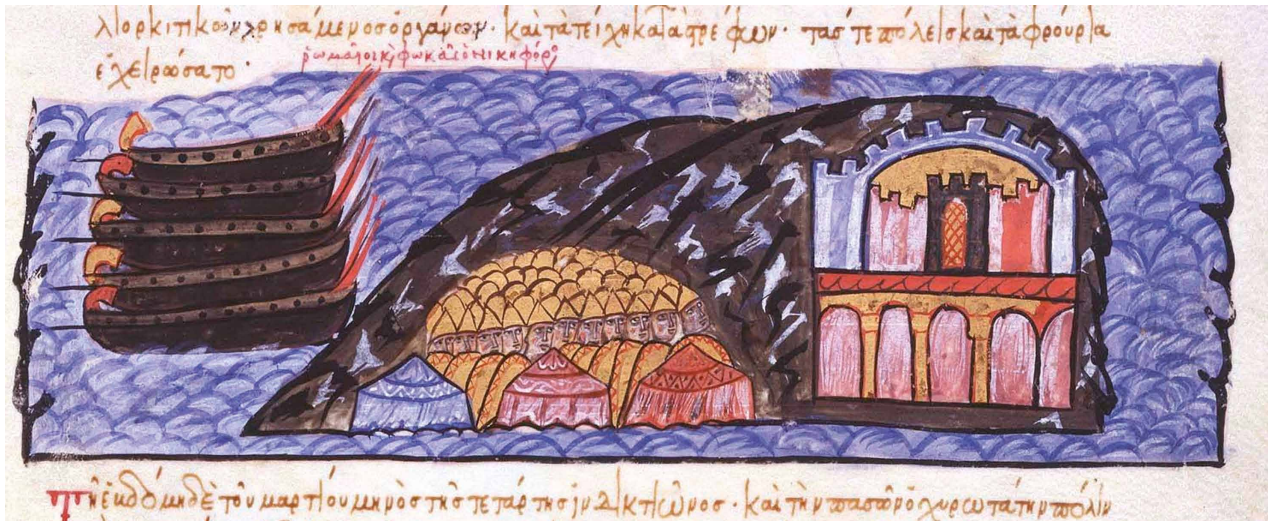 λιορκιτικῶν χρησάμενος ὀργάνων· καὶ τὰ τείχη καταστρέφων· τάς τε πόλεις καὶ τὰ φρούρια
ἐχειρώσατο·
ῥωμαῖοι κ φωκᾶς ὁ νικηφόρ
τῇ ἑβδόμῃ δὲ τοῦ μαρτίου μηνὸς τῆς τετάρτης ἰνδικτιῶνος· καὶ τὴν πασῶν ὀχυρωτάτην πόλιν